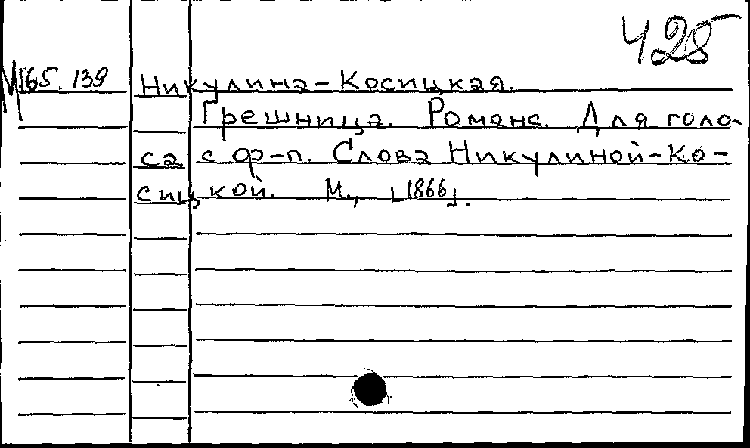 428
М165.139 Никулина-Косицкая.
Грешница. Романс. Для голо-
са с ф-п. Слова Никулиной-Ко-
сицкой. М., [1866].